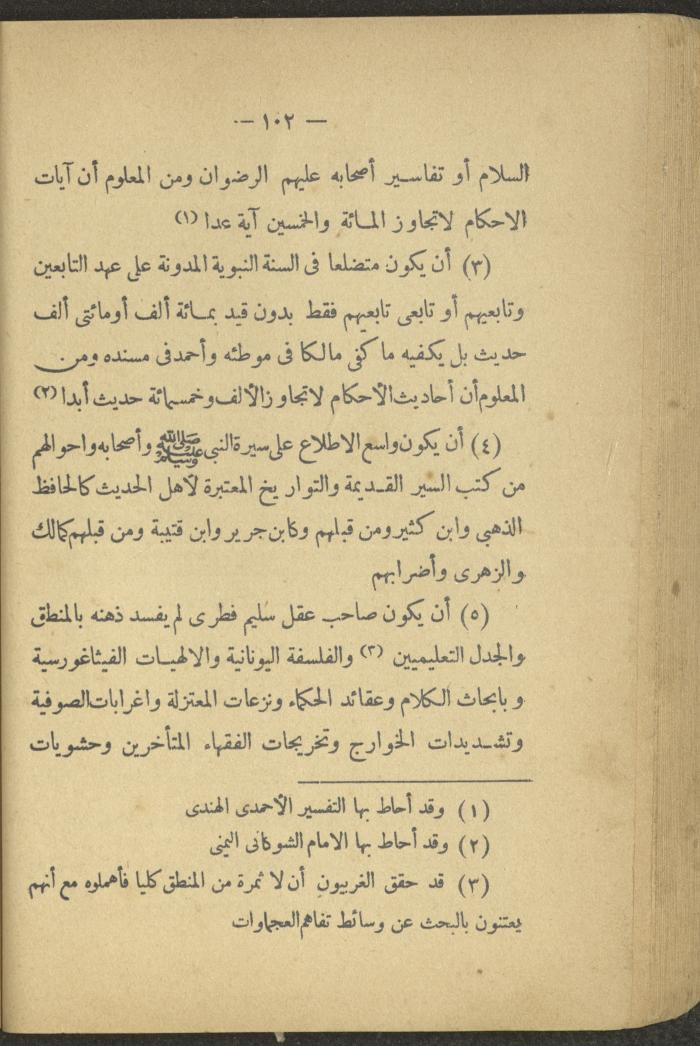 — ١٠٢ —
السلام أو تفاسير أصحابه عليهم الرضوان ومن المعلوم أن آيات
الاحكام لاتتجاوز المائة والخمسين آية عدا (١)
(٣) أن يكون متضلعا فى السنة النبوية المدونة على عهد التابعين
وتابعيهم أو تابعى تابعيهم فقط بدون قيد بمائة ألف أومائتى ألف
حديث بل يكفيه ما كفى مالكا فى موطئه وأحمدفى مسنده ومن
المعلوم أن أحاديث الأحكام لاتتجاوز الألف وخمسمائة حديث أبدا (٢)
(٤) أن يكون واسع الاطلاع على سيرة النبي ﷺ وأصحابه واحوالهم
من كتب السير القديمة والتواريخ المعتبرة لأهل الحديث كالحافظ
الذهبى وابن كثير ومن قبلهم وكابن جرير وابن قتيبة ومن قبلهم كمالك
والزهرى وأضرابهم
(٥) أن يكون صاحب عقل سليم فطرى لم يفسد ذهنه بالمنطق
والجدل التعليميين (٣) والفلسفة اليونانية والالهيات الفيثاغورسية
وبابحاث الكلام وعقائد الحكماء ونزعات المعتزلة واغرابات الصوفية
وتشديدات الخوارج وتخريجات الفقهاء المتأخرين وحشويات
(١) وقد أحاط بها التفسير الأحمدى الهندى
(٢) وقد أحاط بها الامام الشوكانى اليمنى
(٣) قد حقق الغربيون أن لا ثمرة من المنطق كليا فأهملوه مع أنهم
يعتنون بالبحث عن وسائط تفاهم العجماوات